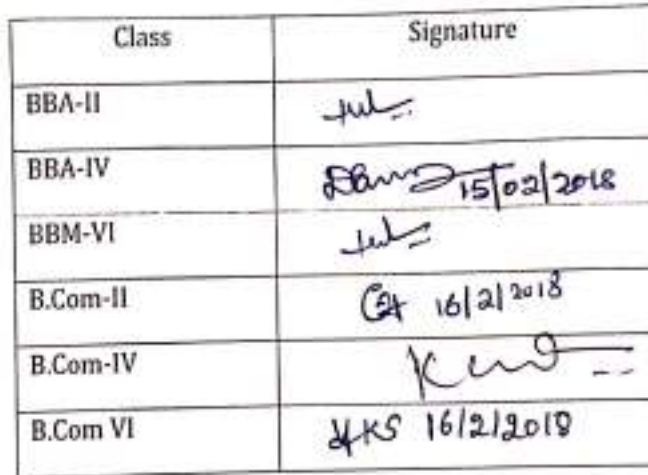 Class Signature
BBA-II
BBA-IV 15/02/2018
BBM-VI
B.Com-II 16/2/2018
B.Com-IV
B.Com VI 16/2/2018